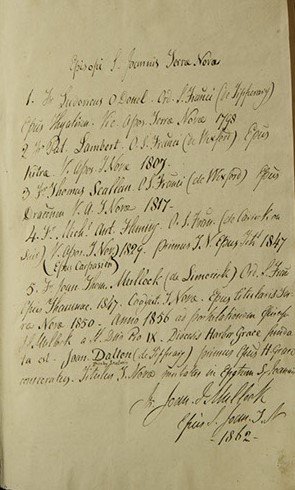 Episcopi S. Joannis Terrae Novae
1. Fr. Ludovicus O'Donel. Ord. S. Franci (de Tipperary)
Epus Thyatirae. Vic. Apos. Terrae Novae 1798
2 Fr. Pat. Lambert. O. S. Franci (de Wexford) Epus
V. Apos. T. Novae 1807.
3 Fr. Thomas Scallan O. S. Franci (de Wexford) Epus
V. A. T. Novae 1817.
4. Fr. Mich. Ant. Fleming. O. S. Fran. (de Carrick on
Suir) V. Apos. T. Nov. 1829. Primus T. N. Epus 1847
(Epus Carpasien)
5. Fr. Joan. Thom. Mullock (de Limerick) Ord. S. Fran
Epus Thaumac. 1847. Coadjut. T. Novae. Epus Titularis Ter
rae Novae 1850. Anno 1856
J. T. Mullock a Pio IX. Diocesis Harbor Grace
ta est. Joan. Dalton (de Tipperary) primus Epus H. Grace
consecratus. Titulus T. Novae mutatus in S. Joannis
Fr. Joan. T. Mullock
Epus S. Joan. T. N
1862-